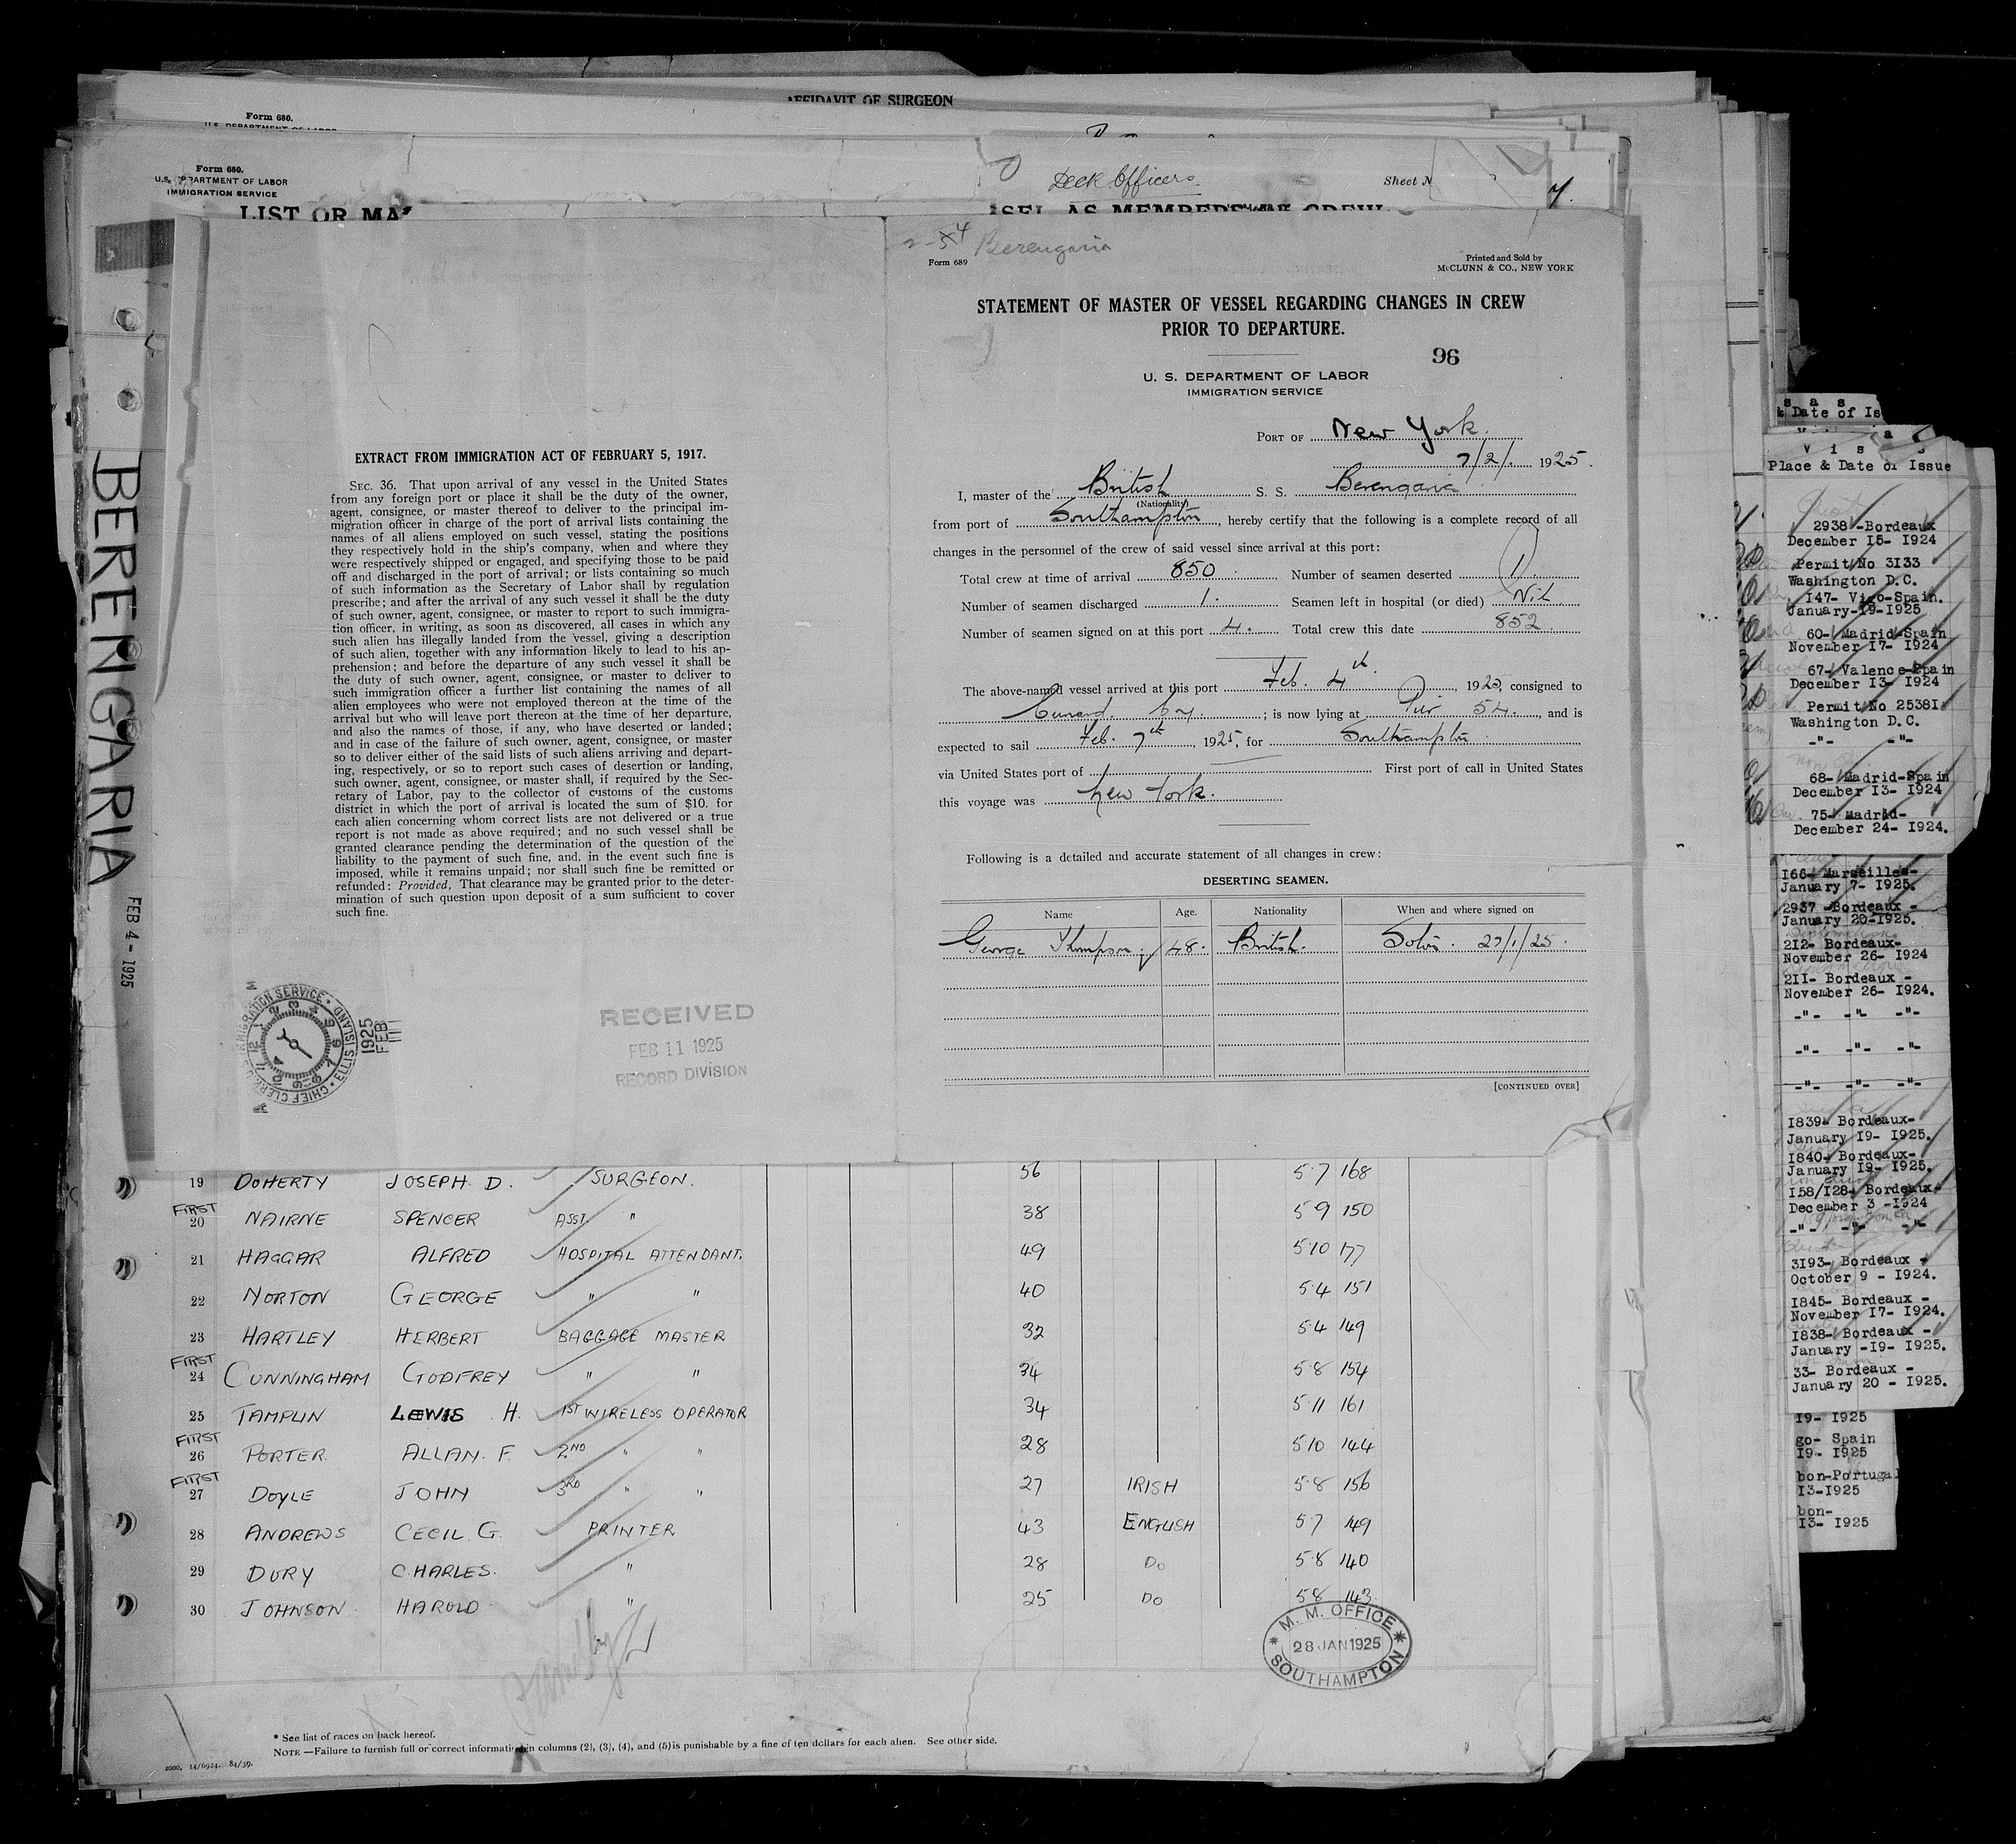 AFFIDAVIT OF SURGEON
Form 680.
U.S. DEPARTMENT OF LABOR
Form 680.
U.S. DEPARTMENT OF LABOR
IMMIGRATION SERVICE
Deck Officers
Sheet N
LIST OR MA
SEL AS MEMBERS CREW
BERENGARIA
FEB 4 - 1925
EXTRACT FROM IMMIGRATION ACT OF FEBRUARY 5, 1917.
SEC. 36. That upon arrival of any vessel in the United States
from any foreign port or place it shall be the duty of the owner,
agent, consignee, or master thereof to deliver to the principal im-
migration officer in charge of the port of arrival lists containing the
names of all aliens employed on such vessel, stating the positions
they respectively hold in the ship's company, when and where they
were respectively shipped or engaged, and specifying those to be paid
off and discharged in the port of arrival; or lists containing so much
of such information as the Secretary of Labor shall by regulation
prescribe; and after the arrival of any such vessel it shall be the duty
of such owner, agent, consignee, or master to report to such immigra-
tion officer, in writing, as soon as discovered, all cases in which any
such alien has illegally landed from the vessel, giving a description
of such alien, together with any information likely to lead to his ap-
prehension; and before the departure of any such vessel it shall be
the duty of such owner, agent, consignee, or master to deliver to
such immigration officer a further list containing the names of all
alien employees who were not employed thereon at the time of the
arrival but who will leave port thereon at the time of her departure,
and also the names of those, if any, who have deserted or landed;
and in case of the failure of such owner, agent, consignee, or master
so to deliver either of the said lists of such aliens arriving and depart-
ing, respectively, or so to report such cases of desertion or landing,
such owner, agent, consignee, or master shall, if required by the Sec-
retary of Labor, pay to the collector of customs of the customs
district in which the port of arrival is located the sum of $10. for
each alien concerning whom correct lists are not delivered or a true
report is not made as above required; and no such vessel shall be
granted clearance pending the determination of the question of the
liability to the payment of such fine, and, in the event such fine is
imposed, while it remains unpaid; nor shall such fine be remitted or
refunded: Provided, That clearance may be granted prior to the deter-
mination of such question upon deposit of a sum sufficient to cover
such fine.
IMMIGRATION SERVICE • ELLIS ISLAND • CHIEF CLERK
1925 FEB 11
RECEIVED
FEB 11 1925
RECORD DIVISION
Berengaria
Form 689
Printed and Sold by
McCLUNN & CO., NEW YORK
STATEMENT OF MASTER OF VESSEL REGARDING CHANGES IN CREW
PRIOR TO DEPARTURE.
96
U. S. DEPARTMENT OF LABOR
IMMIGRATION SERVICE
PORT OF New York.
7/2/. 1925.
I, master of the British S. S. Berengaria
(Nationality)
from port of Southampton, hereby certify that the following is a complete record of all
changes in the personnel of the crew of said vessel since arrival at this port:
Total crew at time of arrival 850. Number of seamen deserted 1.
Number of seamen discharged 1. Seamen left in hospital (or died) Nil.
Number of seamen signed on at this port 4. Total crew this date 852
The above-named vessel arrived at this port Feb. 4th. 1925, consigned to
Cunard. Coy. ; is now lying at Pier 54. , and is
expected to sail Feb. 7th, 1925, for Southampton.
via United States port of First port of call in United States
this voyage was New York.
Following is a detailed and accurate statement of all changes in crew:
DESERTING SEAMEN.
Name Age. Nationality When and where signed on
George Thompson. 48. British. Soton. 27/1/25.
[CONTINUED OVER]
19 DOHERTY JOSEPH. D. SURGEON. 56 5·7 168
FIRST
20 NAIRNE SPENCER ASST. " 38 5·9 150
21 HAGGAR ALFRED HOSPITAL ATTENDANT. 49 5·10 177
22 NORTON GEORGE " " 40 5·4 151
23 HARTLEY HERBERT BAGGAGE MASTER 32 5·4 149
FIRST
24 CUNNINGHAM GODFREY " " 34 5·8 154
25 TAMPLIN LEWIS H. 1ST WIRELESS OPERATOR 34 5·11 161
FIRST
26 PORTER ALLAN. F. 2ND " " 28 5·10 144
FIRST
27 DOYLE JOHN 3RD " " 27 IRISH 5·8 156
28 ANDREWS CECIL. G. PRINTER 43 ENGLISH 5·7 149
29 DURY CHARLES. " 28 DO 5·8 140
30 JOHNSON HAROLD " 25 DO 5·8 143
M. M. OFFICE
28 JAN 1925
SOUTHAMPTON
* See list of races on back hereof.
NOTE —Failure to furnish full or correct information in columns (2), (3), (4), and (5) is punishable by a fine of ten dollars for each alien. See other side.
2000. 14/6924. 84/39.
s a s
& Date of Is
V i s s
Place & Date of Issue
2938 -Bordeaux
December 15- 1924
Permit No 3133
Washington D.C.
147- Vigo-Spain.
January-19-1925
60- Madrid-Spain
November 17- 1924
67- Valence-Spain
December 13- 1924
Permit No 25381
Washington D.C.
-"- -"-
68- Madrid-Spain
December 13- 1924
75- Madrid-
December 24- 1924.
166- Marseilles-
January 7- 1925.
2937 -Bordeaux -
January 20-1925.
212- Bordeaux-
November 26- 1924
211- Bordeaux -
November 26- 1924.
-"- -"- -"-
-"- -"- -"-
-"- -"- -"-
1839- Bordeaux-
January 19- 1925.
1840- Bordeaux-
January 19- 1925.
158/128- Bordeaux-
December 3 -1924
-"- -"- -"-
3193- Bordeaux -
October 9 - 1924.
1845- Bordeaux -
November 17- 1924.
1838- Bordeaux -
January -19- 1925.
33- Bordeaux -
January 20 - 1925.
19- 1925
go- Spain
19- 1925
bon-Portugal
13-1925
bon-
13- 1925